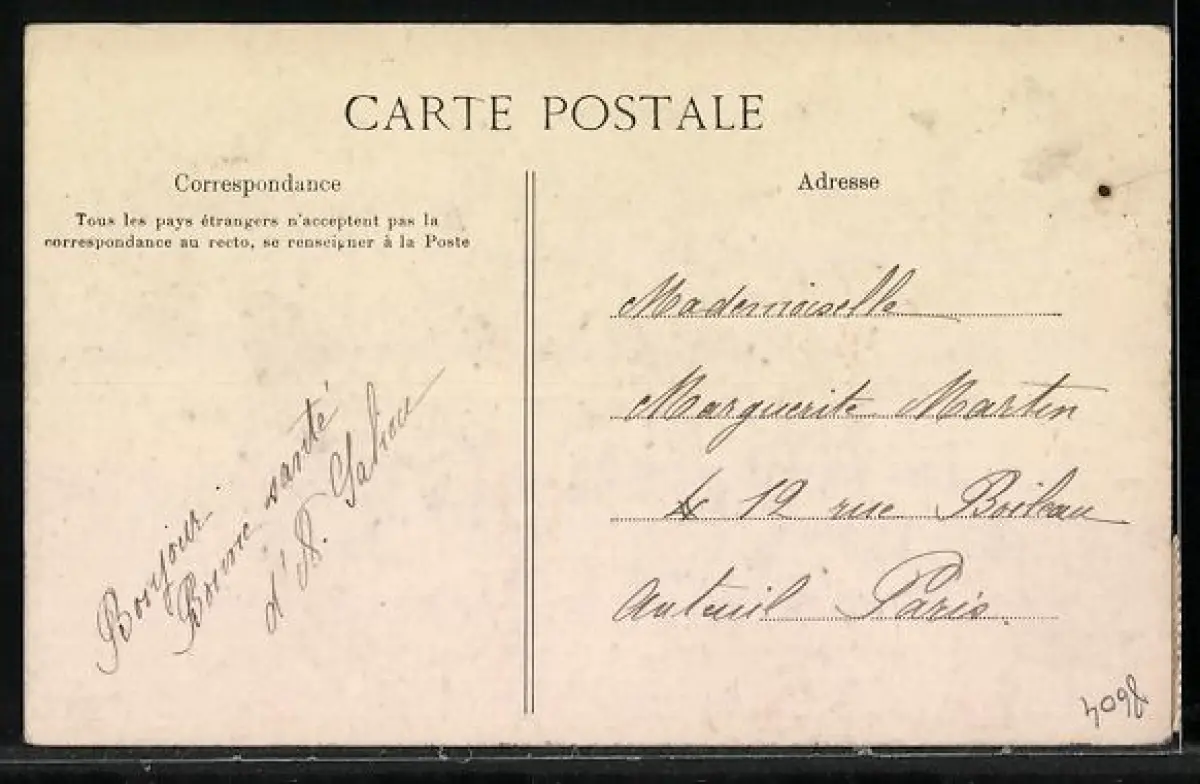 CARTE POSTALE
Correspondance
Tous les pays étrangers n'acceptent pas la
correspondance au recto, se renseigner à la Poste
Bonjour
Bonne santé
d'A.
Adresse
Mademoiselle
Marguerite Martin
12 rue Boileau
Auteuil Paris.
4098